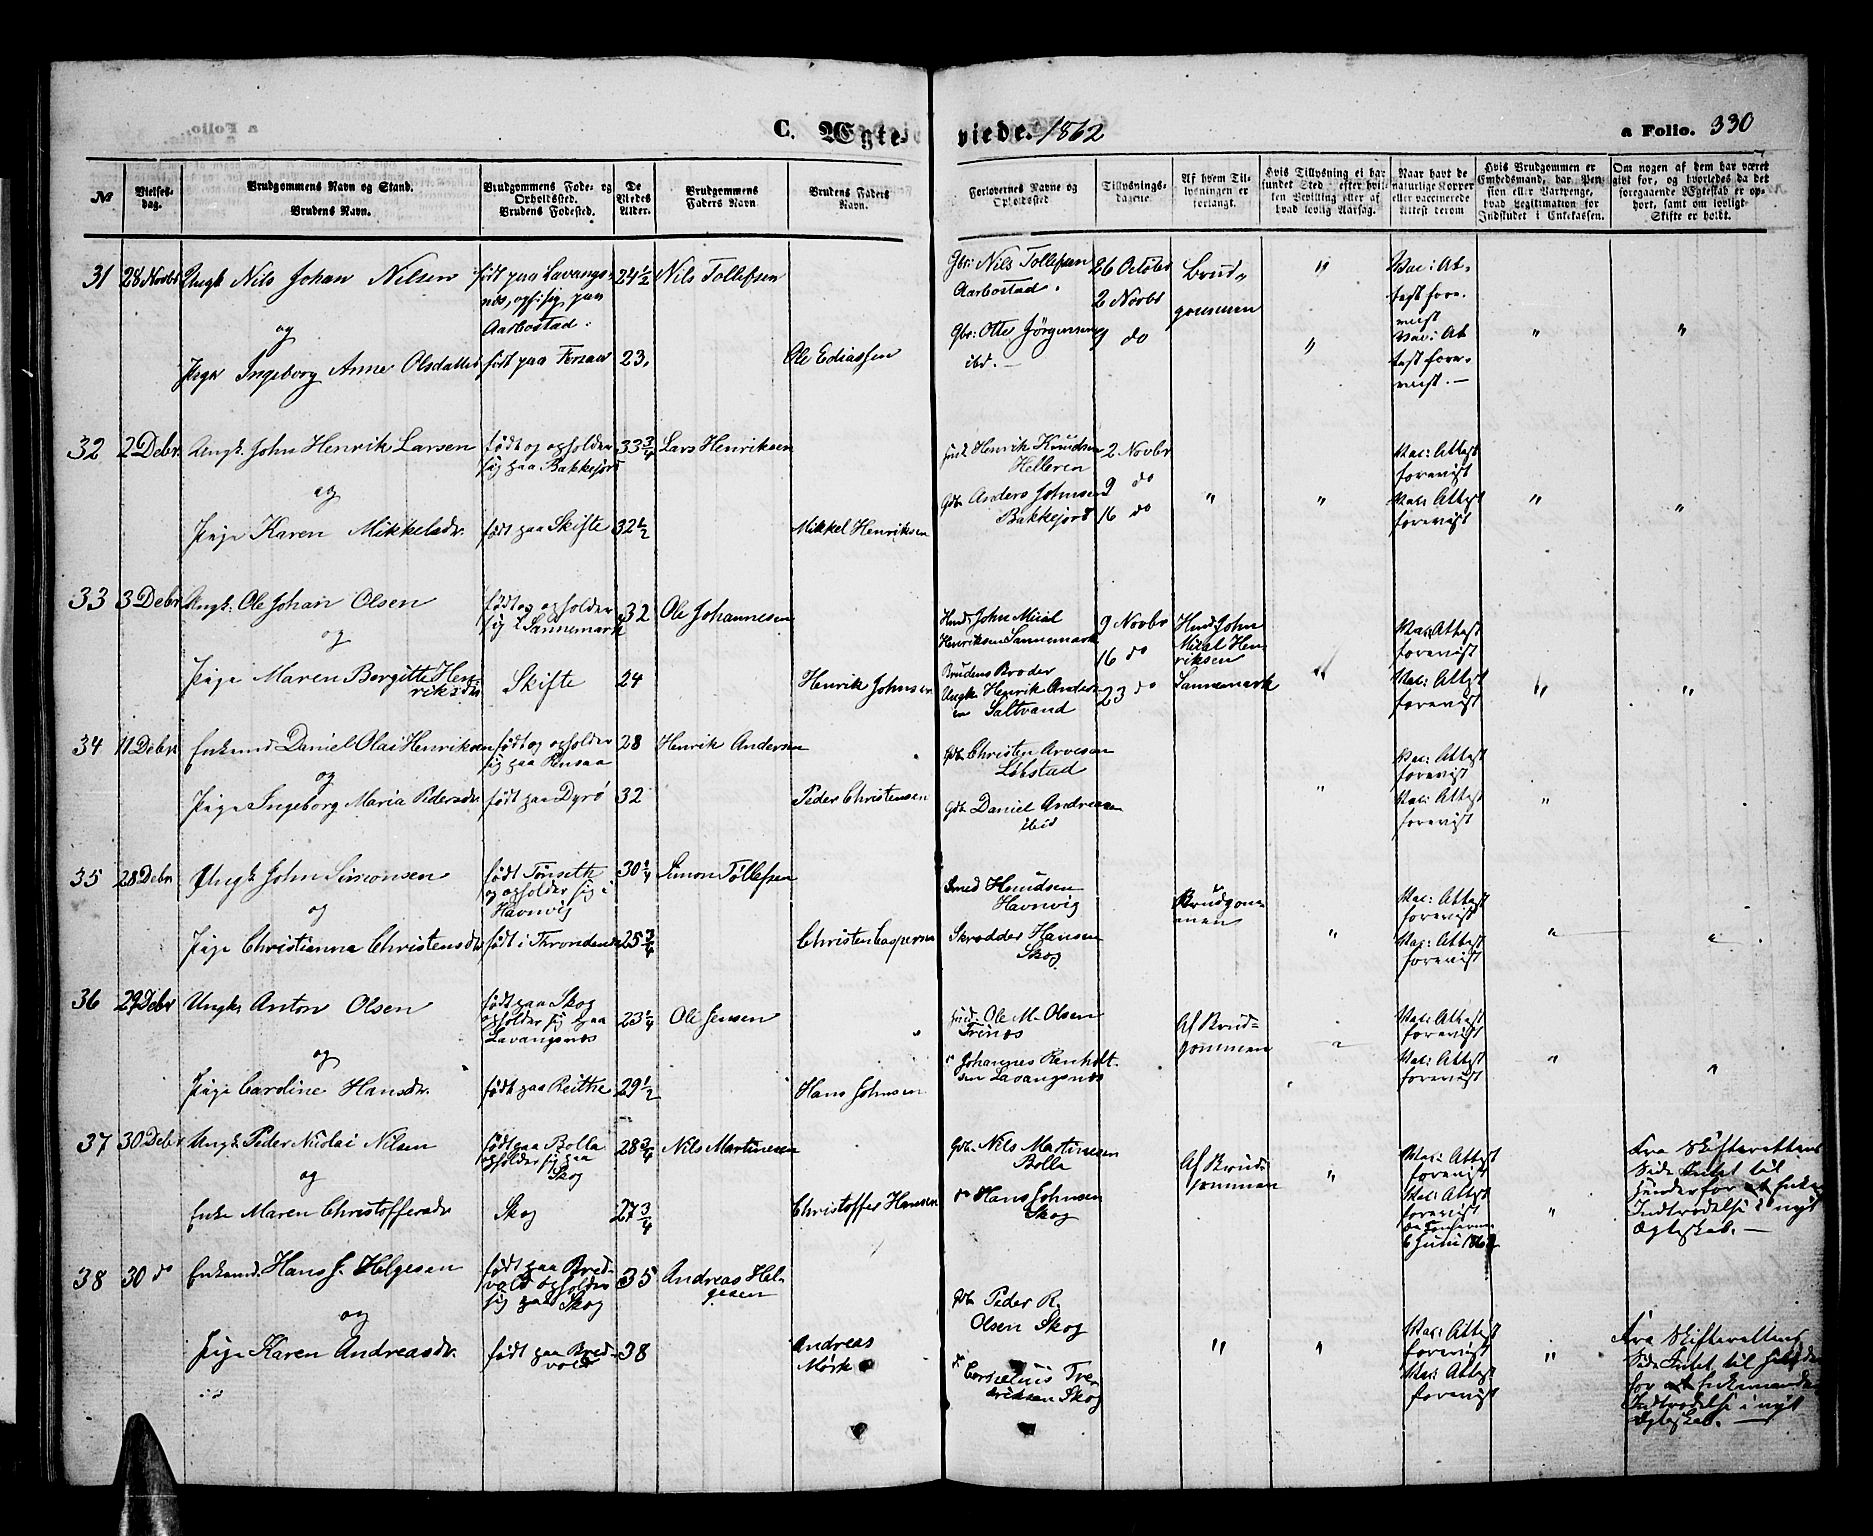 C. Ægte- viede. 1862
a Folio. 330
№
Vielses-
dag.
Brudgommens Navn og Stand.
Brudens Navn.
Brudgommens Føde- og
Opholdsted.
Brudens Fødested.
De
Viedes
Alder.
Brudgommens
Faders Navn
Brudens Faders
Navn.
Forlovernes Navne og
Opholdsted
Tillysnings-
dagene.
Af hvem Til-
lysningen er
forlangt.
Hvis Tillysning ei har
fundet Sted, efter hvil-
ken Bevilling eller af
hvad lovlig Aarsag.
Naar havt de
naturlige Kopper
eller vaccinerede
Attest derom
Hvis Brudgommen er
Embedsmand, har Pen-
sion eller Vartpenge,
hvad Legitimation for
Indskudet i Enkekassen.
Om nogen af dem har været
gift før, og hvorledes da det
foregaaende Ægteskab er op-
hørt, samt om lovligt
Skifte er holdt.
31 28 Novbr Ungk Nils Johan Nilsen
og
Pige Ingeborg Anne Olsdatter
født paa Lavangs-
næs, oph: sig paa
Aarbostad.
født paa
24 1/2
23.
Nils Tollefsen
Ole Ediassen
Gbr: Nils Tollefsen
Aarbostad.
Gbr: Otte Jörgensen
ibd.
26 Octobr
2 Novbr
9 do
Brud-
gommen
" "
Vac: At-
test fore-
vist
Vac: At
test fore-
vist.
" "
32 2 Debr Ungk. John Henrik Larsen
og
Pige Karen Mikkelsdr.
født og opholder
sig paa Bakkejord
født paa Skifte
33 3/4
32 1/2
Lars Henriksen
Mikkel Henriksen
Henrik Knudsen
Helleren
Gdb Anders Johnsen
Bakkejord
2 Novbr
9 do
16 do
" "
Vac: Attest
forevist
Vac: Attest
forevist
" "
33 3 Debr Ungk. Ole Johan Olsen
og
Pige Maren Bergitte Hen-
riksdr
født og opholder
sig i Sannemark
Skifte
32
24
Ole Johannesen
Henrik Johnsen
Husd John Mical
Henriksen Sannemark
Brudens Broder
Ungk Henrik Anders-
en Saltvand
9 Novbr
16 do
23 do
Husd John
Mical Hen-
riksen
Sannemark
Vac: Attest
forevist
Vac: Attest
forevist
" "
34 11 Debr Enkemd Daniel Olai Henriksen
og
Pige Ingeborg Maria Pedersdr
født og opholder
sig paa Rensaa
født paa Dyrö
28
32
Henrik Andersen
Peder Christensen
Gdb Christen Arvesen
Löbstad
Gdb. Daniel Andreasen
ibid
"
Vac: Attest
forevist
Vac: Attest
forevist
"
35 28 Debr Ungk John Simonsen
og
Pige Christianna Christensdr
født Tönseth
og opholder sig i
Havnvig
født i Throndenæs
30 1/4
25 3/4
Simon Tollefsen
Christen Caspersen
Smed Knudsen
Havnvig
Skrædder Hansen
Skog
Brudgom-
men
"
Vac: Attest
forevist
Vac: Attest
forevist
" "
36 29 Debr Ungk. Anton Olsen
og
Pige Caroline Hansdr.
født paa Skog
opholder sig paa
Lavangsnæs
født paa Reithe
23 1/4
29 1/2
Ole Jensen
Hans Johnsen
Ole M. Olsen
" Johannes Renholt-
sen Lavangsnæs
Af Brud-
gommen
"
Vac: Attest
forevist
Vac: Attest
forevist
" "
37 30 Debr Ungk. Peder Nicolai Nilsen
og
Enke Maren Christoffersdr
født paa Bolla
opholder sig paa
Skog
Skog
28 3/4
27 3/4
Nils Martinesen
Christoffer Hansen
Gdb. Nils Martinesen
Bolla
do Hans Johnsen
Skog
Af Brud-
gommen
"
Vac: Attest
forevist
Vac: Attest
forevist
6 Juni
"
Fra Skifterettens
Side Intet til
Hinder for Enkes
Indtrædelse i nyt
Ægteskab.
38 30 do Enkemd. Hans J. Helgesen
og
Pige Karen Andreasdr.
født paa Bred-
vold opholder
sig paa Skog
født paa Bred-
vold
35
38
Andreas Hel-
gesen
Andreas
Mörk
Gdb Peder R.
Olsen Skog
do Cornelius Fre-
driksen Skog
" "
Vac: Attest
forevist
Vac: Attest
forevist
"
Fra Skifterettens
Side Intet til Hinder
for Enkemandens
Indtrædelse i nyt
Ægteskab.